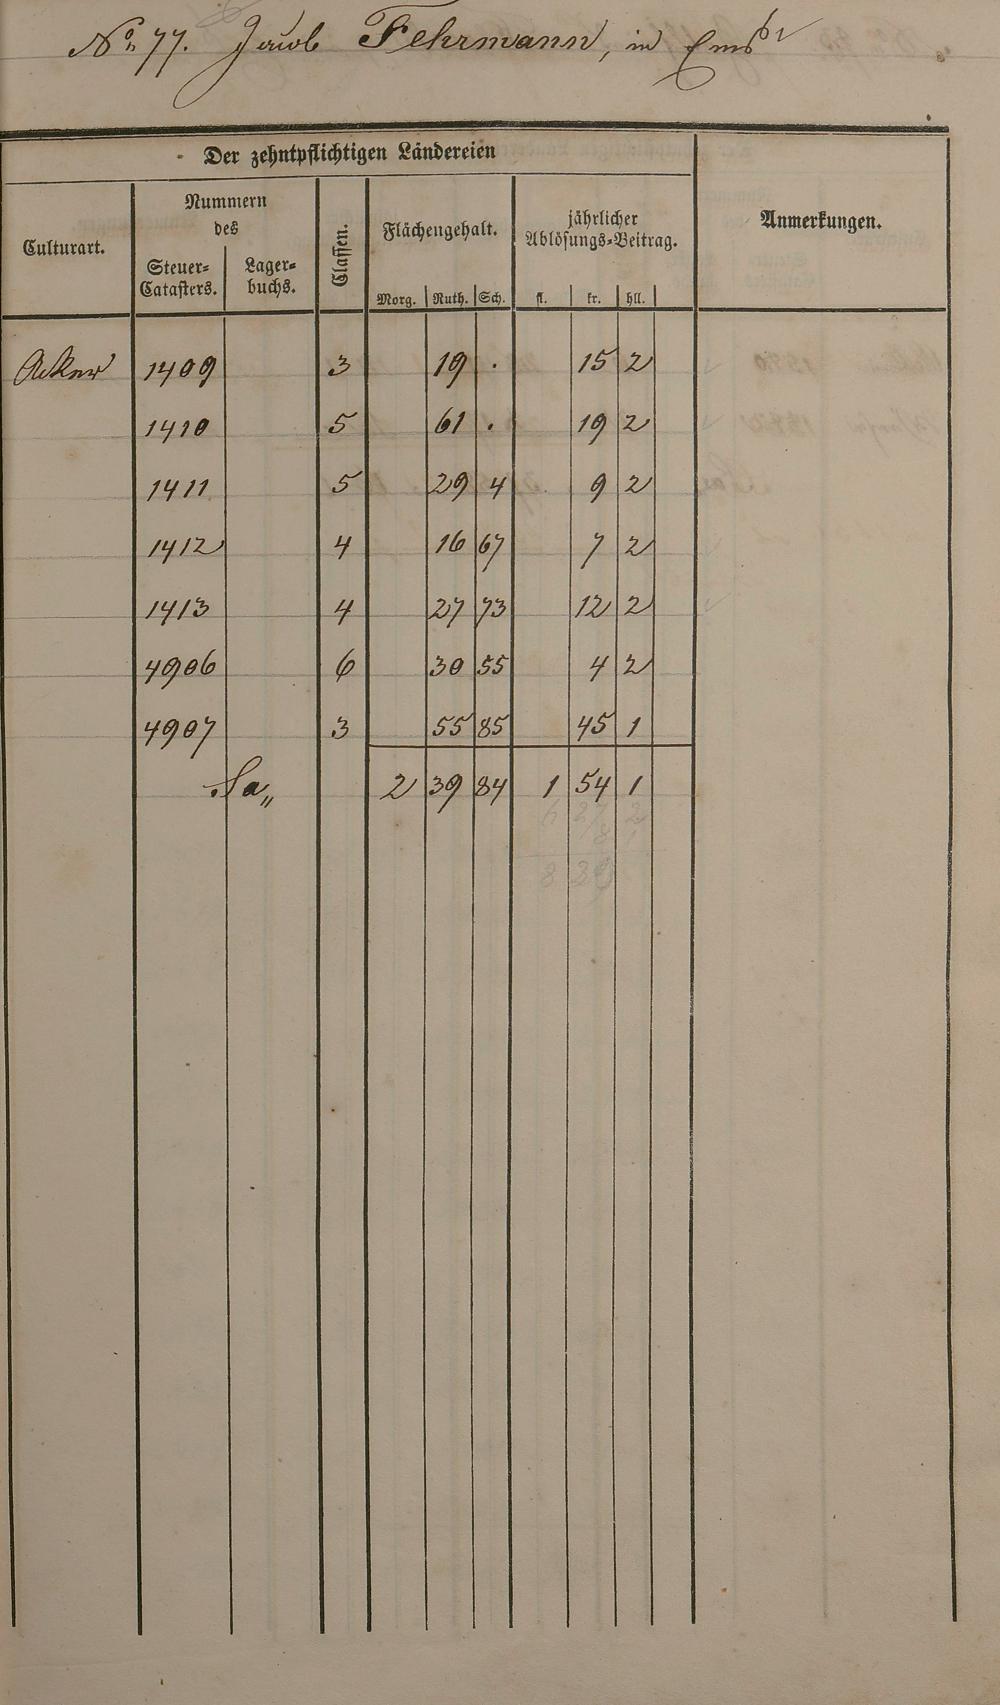 No. 77. Jacob Fehrmann, in Ems
Der zehntpflichtigen Ländereien
Culturart.
Nummern
des
Steuer-
Catasters.
Lager-
buchs.
Classen.
Flächengehalt.
Morg. Ruth. Sch.
jährlicher
Ablösungs-Beitrag.
fl. kr. hll.
Anmerkungen.
Acker 1409 3 19 . 15 2
1410 5 61 . 19 2
1411 5 29 4 9 2
1412 4 16 67 7 2
1413 4 27 73 12 2
4906 6 30 55 4 2
4907 3 55 85 45 1
Sa„ 2 39 84 1 54 1
6 27 2
8 1